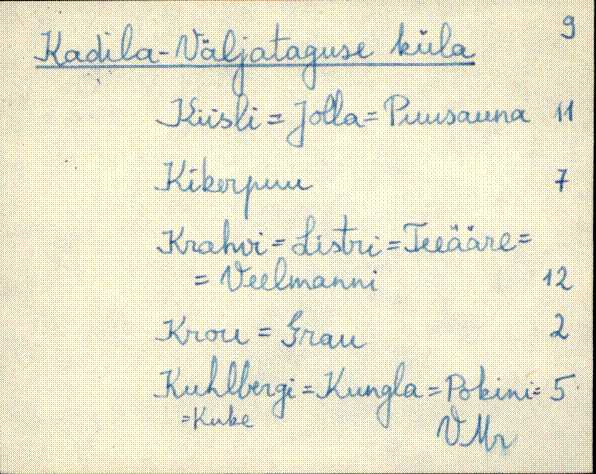 9
Kadila-Väljataguse küla
Kiisli = Jolla = Puusauna 11
Kikerpuu 7
Krahvi = Listri = Teeääre =
= Veelmanni 12
Krou = Grau 2
Kuhlbergi = Kungla = Pokini = 5
= Kube
VMr